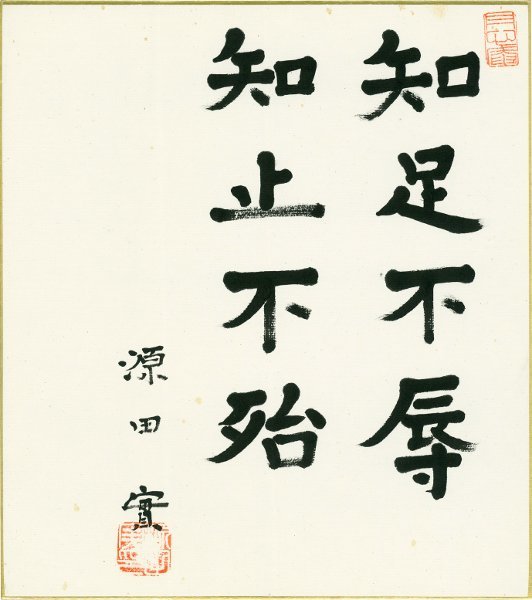 知足不辱
知止不殆
源田實